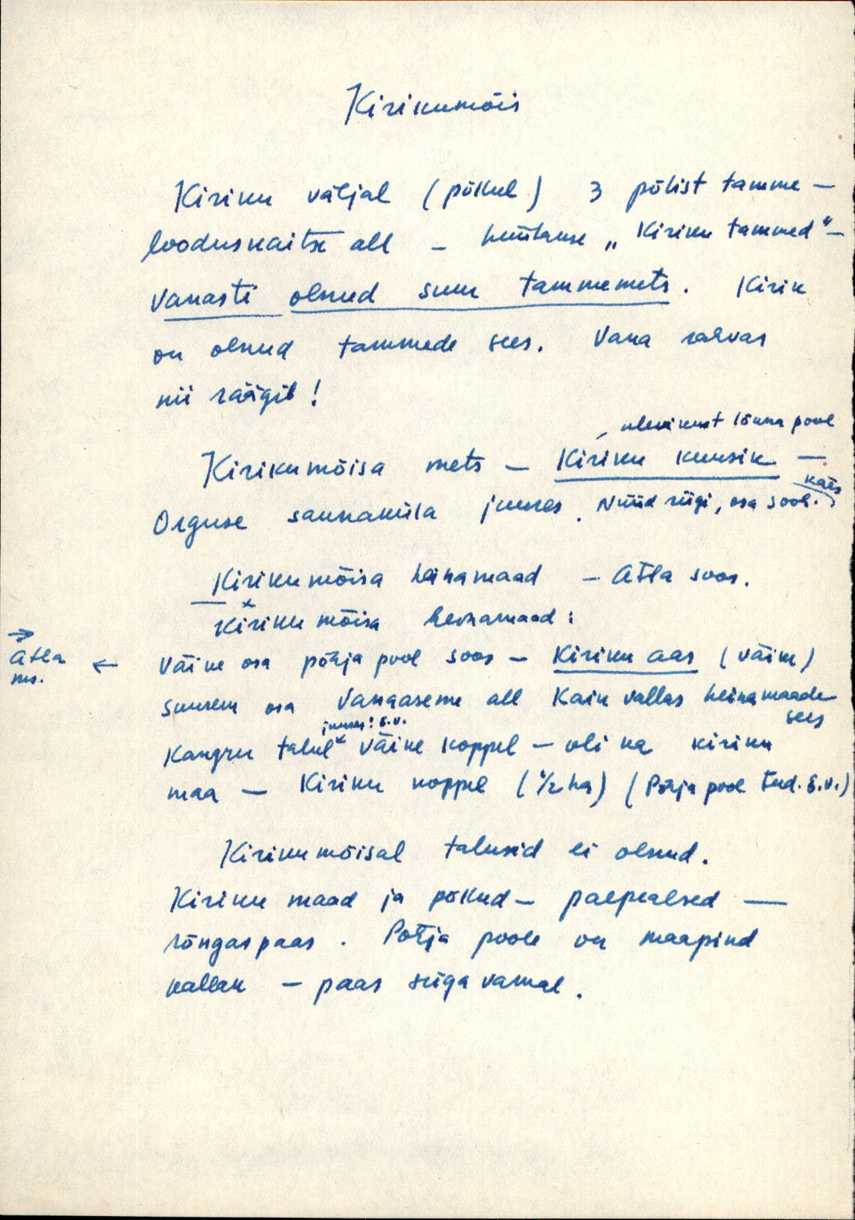 Kirikumõis
Kiriku väljal (põllul) 3 põlist tamme –
looduskaitse all – hüütakse „Kiriku tammed" –
vanasti olnud suur tammemets. Kirik
on olnud tammede sees. Vana rahvas
nii räägib!
alevikust lõuna pool
Kirikumõisa mets – Kiriku kuusik –
Orguse saunaküla juures. Nüüd riigi, osa sool. käis
Kirikumõisa heinamaad – Atla soos.
Kirikumõisa heinamaad:
→ Atla ms. ← väike osa põhja pool soos – Kiriku aas (väike)
suurem osa Vangaseme all Kaiu vallas heinamaade sees
juures! E.V.
Kangru talul väike koppel – oli ka kiriku
maa – Kiriku koppel (1/2 ha) (Põhja pool E.V.)
Kirikumõisal talusid ei olnud.
Kiriku maad ja põllud – paepealsed –
rõngaspaas. Põhja poole on maapind
kallak – paas sügavamal.